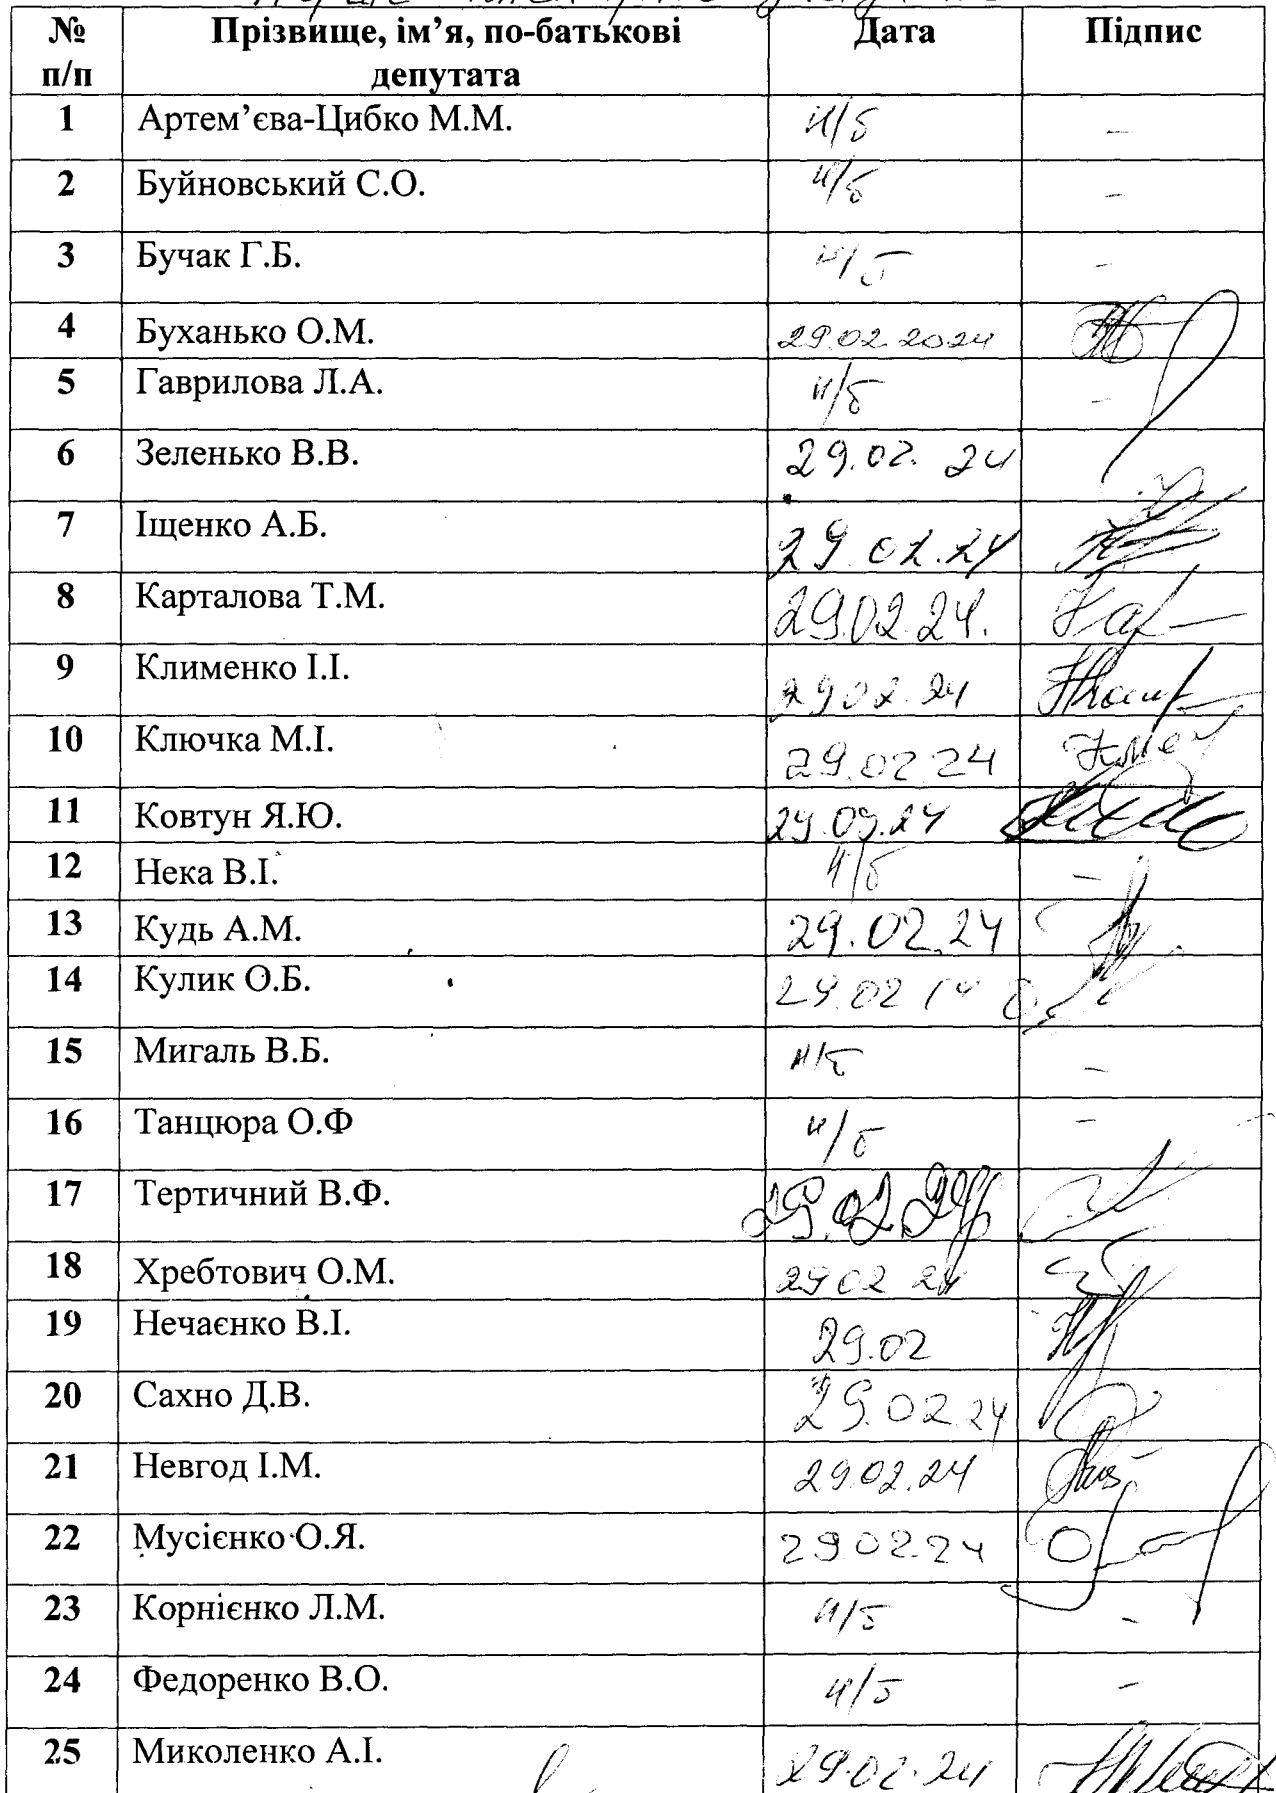 № Прізвище, ім’я, по-батькові Дата Підпис
п/п депутата
1 Артем’єва-Цибко М.М. н/б –
2 Буйновський С.О. н/б –
3 Бучак Г.Б. н/б –
4 Буханько О.М. 29.02.2024
5 Гаврилова Л.А. н/б –
6 Зеленько В.В. 29.02.24
7 Іщенко А.Б. 29.02.24
8 Карталова Т.М. 29.02.24.
9 Клименко І.І. 29.02.24
10 Ключка М.І. 29.02.24
11 Ковтун Я.Ю.
12 Нека В.І. н/б –
13 Кудь А.М. 29.02.24
14 Кулик О.Б.
15 Мигаль В.Б. н/б –
16 Танцюра О.Ф н/б –
17 Тертичний В.Ф. 29.02.24
18 Хребтович О.М. 29 02 24
19 Нечаєнко В.І. 29.02
20 Сахно Д.В. 29.02.24
21 Невгод І.М. 29.02.24
22 Мусієнко О.Я. 29.02.24
23 Корнієнко Л.М. н/б –
24 Федоренко В.О. н/б –
25 Миколенко А.І. 29.02.24